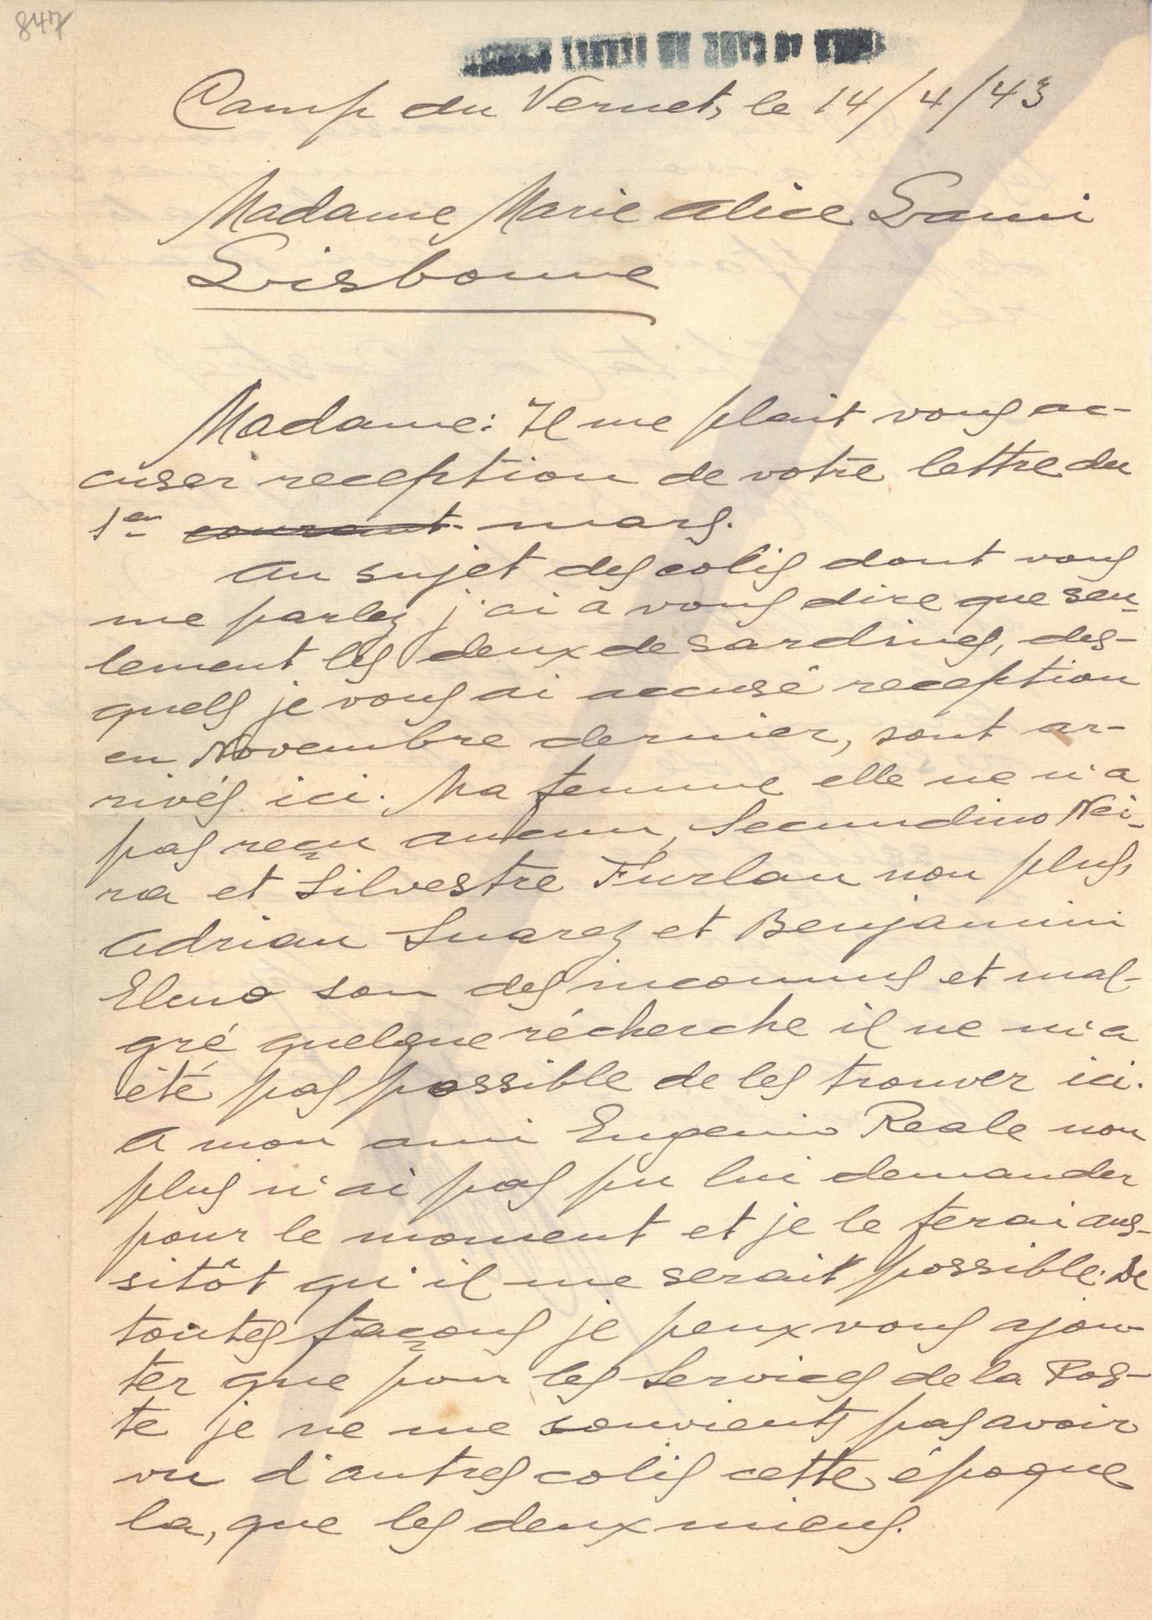 847
Camp du Vernet, le 14/4/43
Madame Marie Alice Lami
Lisbonne
Madame: Il me plait vous ac-
cuser reception de votre lettre du
1er courant mars.
Au sujet des colis dont vous
me parlez j'ai a vous dire que seu-
lement les deux de sardines, des-
quels je vous ai accusé reception
en Novembre dernier, sont ar-
rivés ici. Ma femme elle ne n'a
pas reçu aucun, Secundino Nei-
ra et Silvestre Furlan non plus,
Adrian Suarez et Benjamin
Elmo son des inconnus et mal-
gré quelque récherche il ne m'a
été pas possible de les trouver ici.
A mon ami Eugenio Reale non
plus n'ai pas pu lui demander
pour le moment et je le ferai aus-
sitôt qu'il me serait possible. De
toutes façons je peux vous ajou-
ter que pour les Services de la Pos-
te je ne me souvients pas avoir
vu d'autres colis cette époque
la, que les deux miens.